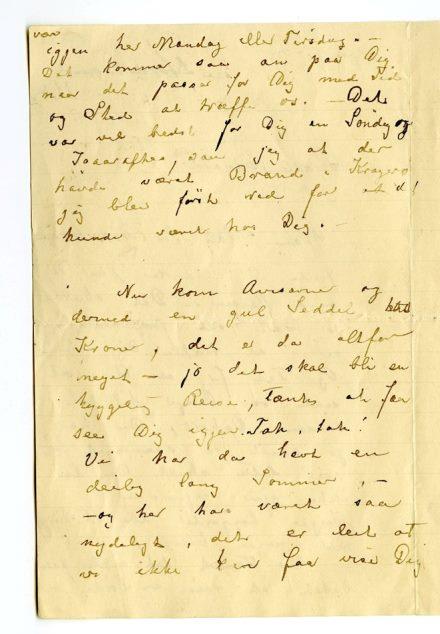 var
igjen her Mandag eller Tirsdag. —
Det kommer saa an paa Dig
naar det passer for Dig med Tid
og Sted at træffe os. — Det
var vel bedst for Dig en Söndag
jeg at der
havde været Brand i Kragerø
jeg blev først ræd for at d!
kunde været hos Dig. —
Nu kom Aviserne og
dermed en gul Seddel,
Kroner, det er da altfor
meget — jo det skal bli en
hyggelig Reise, tænk at faa
see Dig igjen. Tak, tak!
Vi har da havt en
deilig lang Sommer, —
— og her har været saa
nydeligt, det er leit at
vi ikke kan faa vise Dig